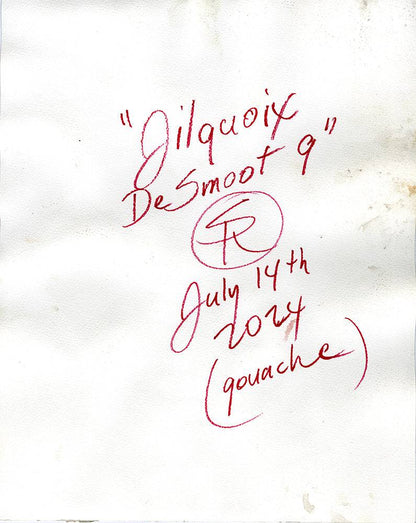 "Jilquoix
DeSmoot 9"
SR
July 14th
2024
(gouache)